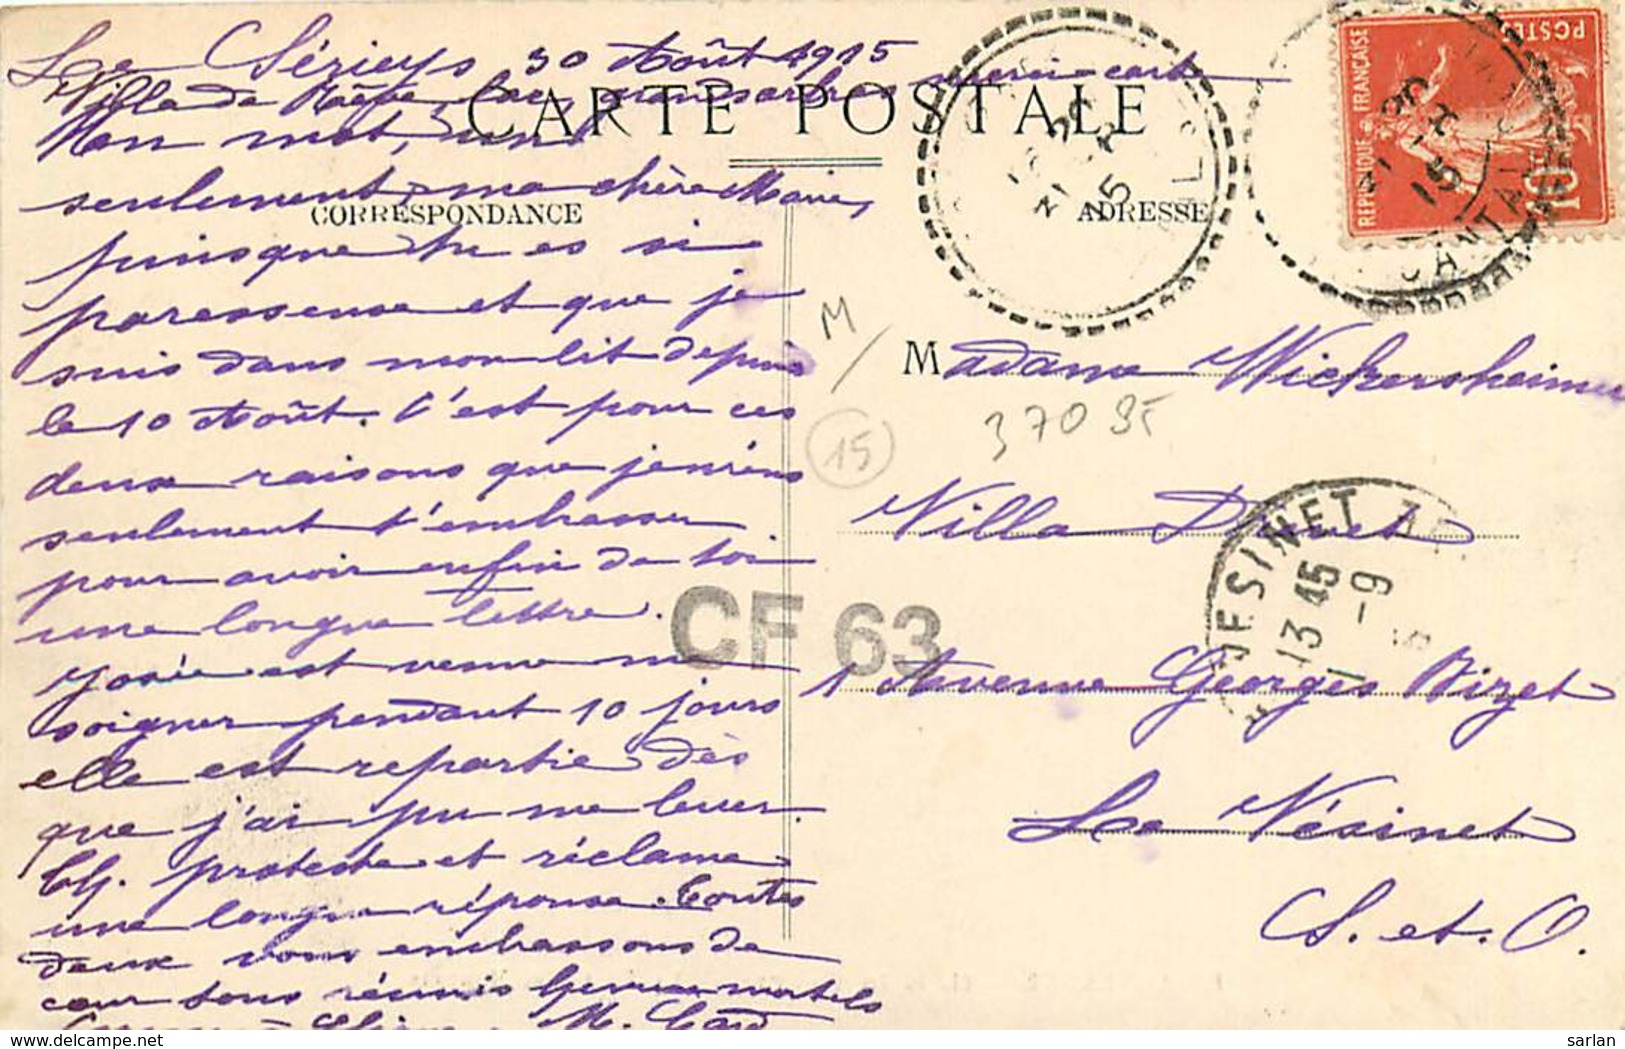 30 Août 1915
CARTE POSTALE
Mon mot, un
seulement, ma chère Marie,
CORRESPONDANCE
puisque tu es si
paresseuse et que je
suis dans mon lit depuis
le 10 Août. C'est pour ces
deux raisons que je viens
seulement t'embrasser
pour avoir enfin de toi
une longue lettre.
est venue me
soigner pendant 10 jours
elle est repartie dès
que j'ai pu me lever.
proteste et réclame
une longue réponse. Toutes
deux vous embrassons de
cœur tous réunis
ADRESSE
Madame Wickersheimer
Villa
1 Avenue Georges Bizet
Le Vésinet
S. et. O.
M/
15
370 85
CF 63
REPUBLIQUE FRANÇAISE
POSTES
10
CANTAL
VESINET
13 45
1 -9
Sarlan
www.delcampe.net